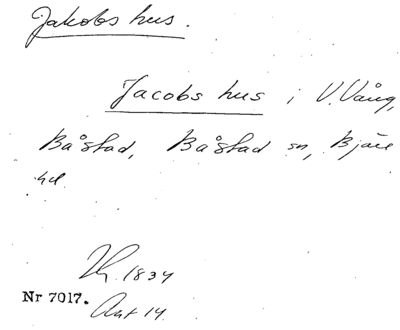 Jakobs hus.
Jacobs hus i V. Vång,
Båstad, Båstad sn, Bjäre
hd.
1834
Nr 7017.
Akt 14.